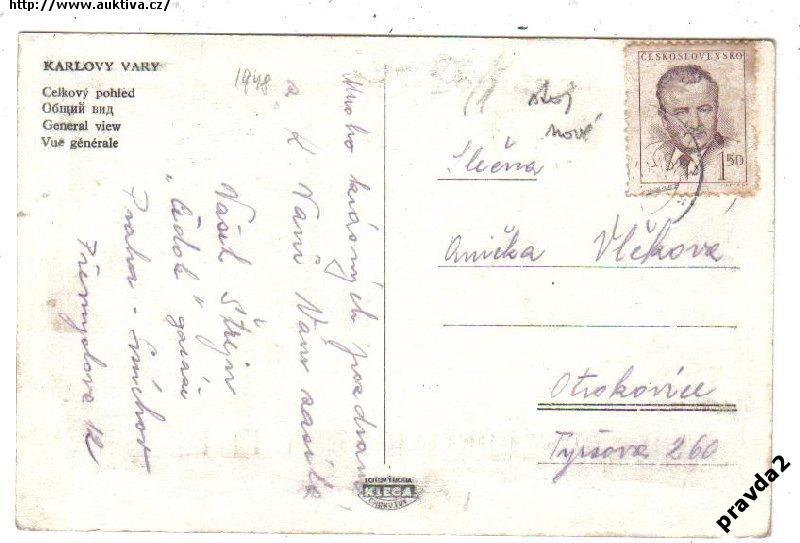 http://www.auktiva.cz/
KARLOVY VARY
Celkový pohled
Общий вид
General view
Vue générale
1948
Mnoho krásných pozdravů
z K. Varů Vám zasílá
Vašek
"Čedok" garáže
Praha - Smíchov
Přemyslova 12
ČESKOSLOVENSKO
1.50
Slečna
Anička Vlčkova
Otrokovice
Tyršova 260
KLEGA
pravda2